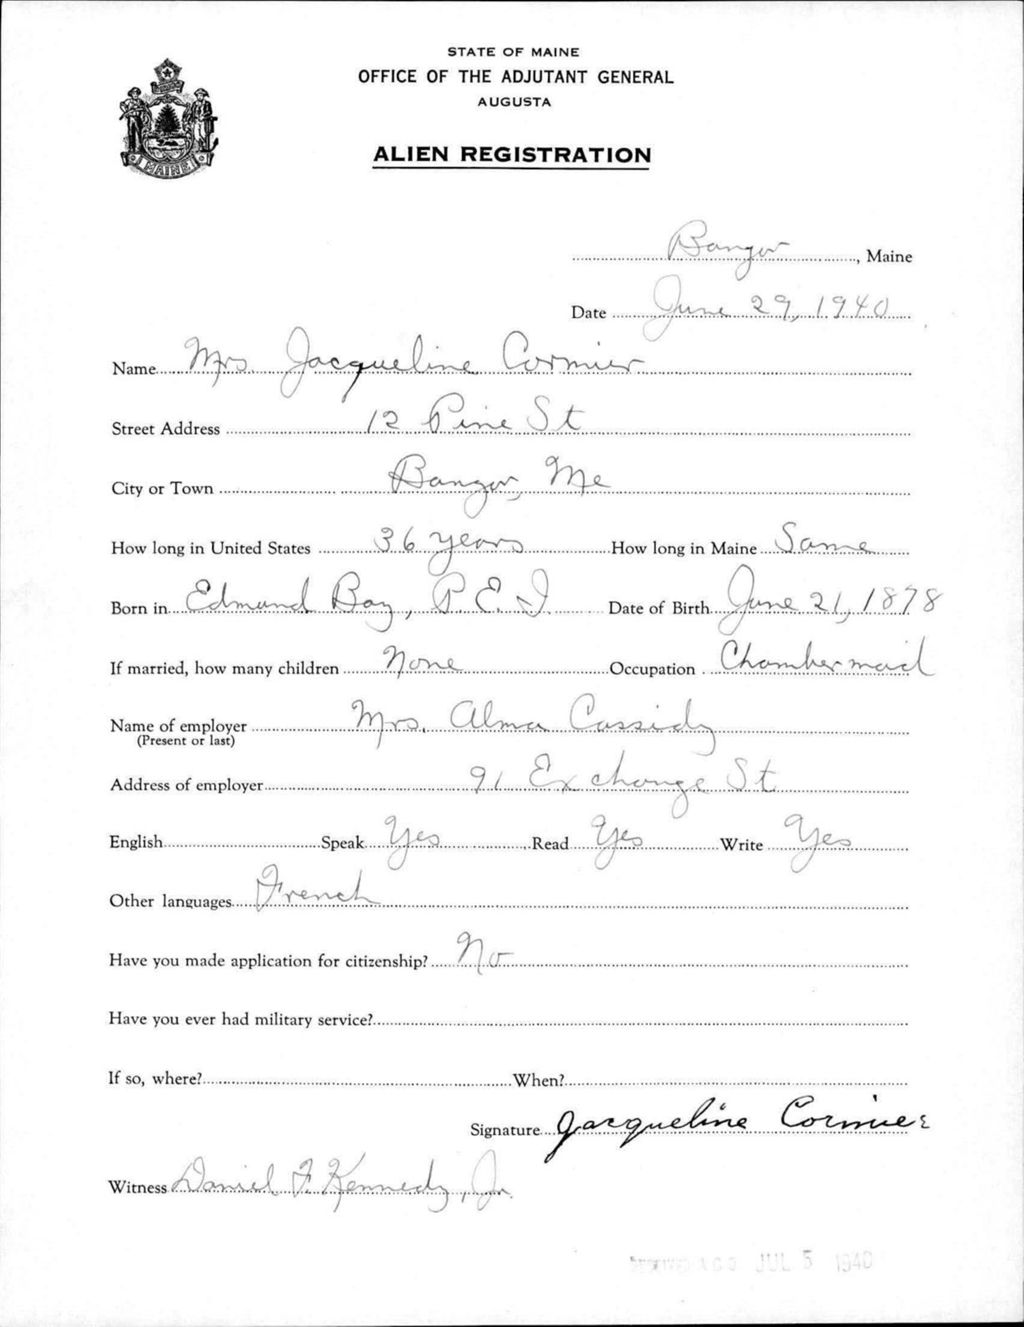 STATE OF MAINE
OFFICE OF THE ADJUTANT GENERAL
AUGUSTA
ALIEN REGISTRATION
MAINE
Bangor, Maine
Date June 29, 1940
Name Mrs Jacqueline Cormier
Street Address 12 Pine St
City or Town Bangor, Me
How long in United States 36 years How long in Maine Same
Born in Edmund Bay, P.E.I. Date of Birth June 21, 1878
If married, how many children None Occupation Chambermaid
Name of employer Mrs. Alma Cassidy
(Present or last)
Address of employer 91 Exchange St
English Speak Yes Read Yes Write Yes
Other languages French
Have you made application for citizenship? No
Have you ever had military service?
If so, where? When?
Signature Jacqueline Cormier
Witness Daniel F Kennedy, Jr.
JUL 5 1940